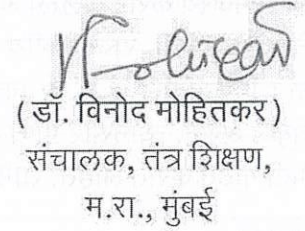 ( डॉ. विनोद मोहितकर )
संचालक, तंत्र शिक्षण,
म.रा., मुंबई